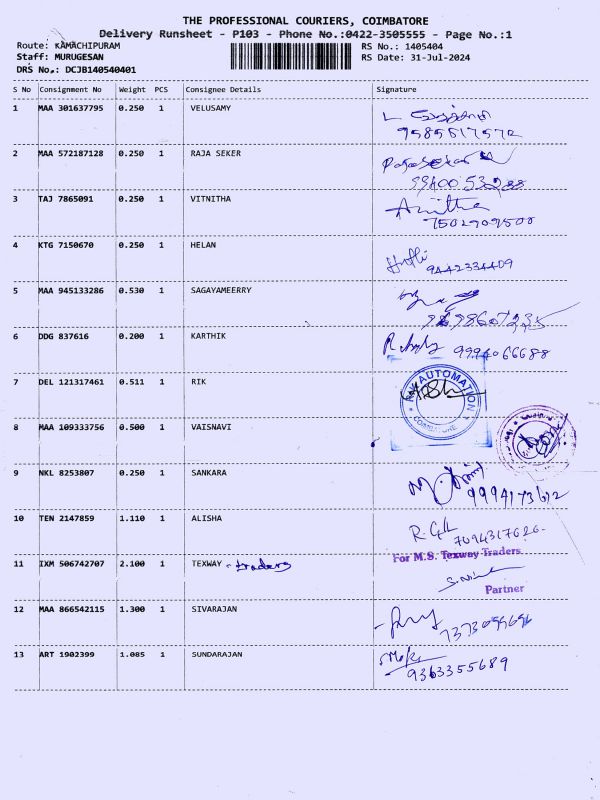 THE PROFESSIONAL COURIERS, COIMBATORE
Delivery Runsheet - P103 - Phone No.:0422-3505555 - Page No.:1
Route: KAMACHIPURAM RS No.: 1405404
Staff: MURUGESAN RS Date: 31-Jul-2024
DRS No.: DCJB140540401
S No Consignment No Weight PCS Consignee Details Signature
1 MAA 301637795 0.250 1 VELUSAMY
9585517572
2 MAA 572187128 0.250 1 RAJA SEKER
3 TAJ 7865091 0.250 1 VITNITHA
7502909508
4 KTG 7150670 0.250 1 HELAN
9442334409
5 MAA 945133286 0.530 1 SAGAYAMEERRY
6 DDG 837616 0.200 1 KARTHIK
9994066688
7 DEL 121317461 0.511 1 RIK
AUTOMATION
COIMBATORE
8 MAA 109333756 0.500 1 VAISNAVI
9 NKL 8253807 0.250 1 SANKARA
9994173612
10 TEN 2147859 1.110 1 ALISHA
7094317626
For M.S. Texway Traders
11 IXM 506742707 2.100 1 TEXWAY - traders
Partner
12 MAA 866542115 1.300 1 SIVARAJAN
13 ART 1902399 1.085 1 SUNDARAJAN
9363355689